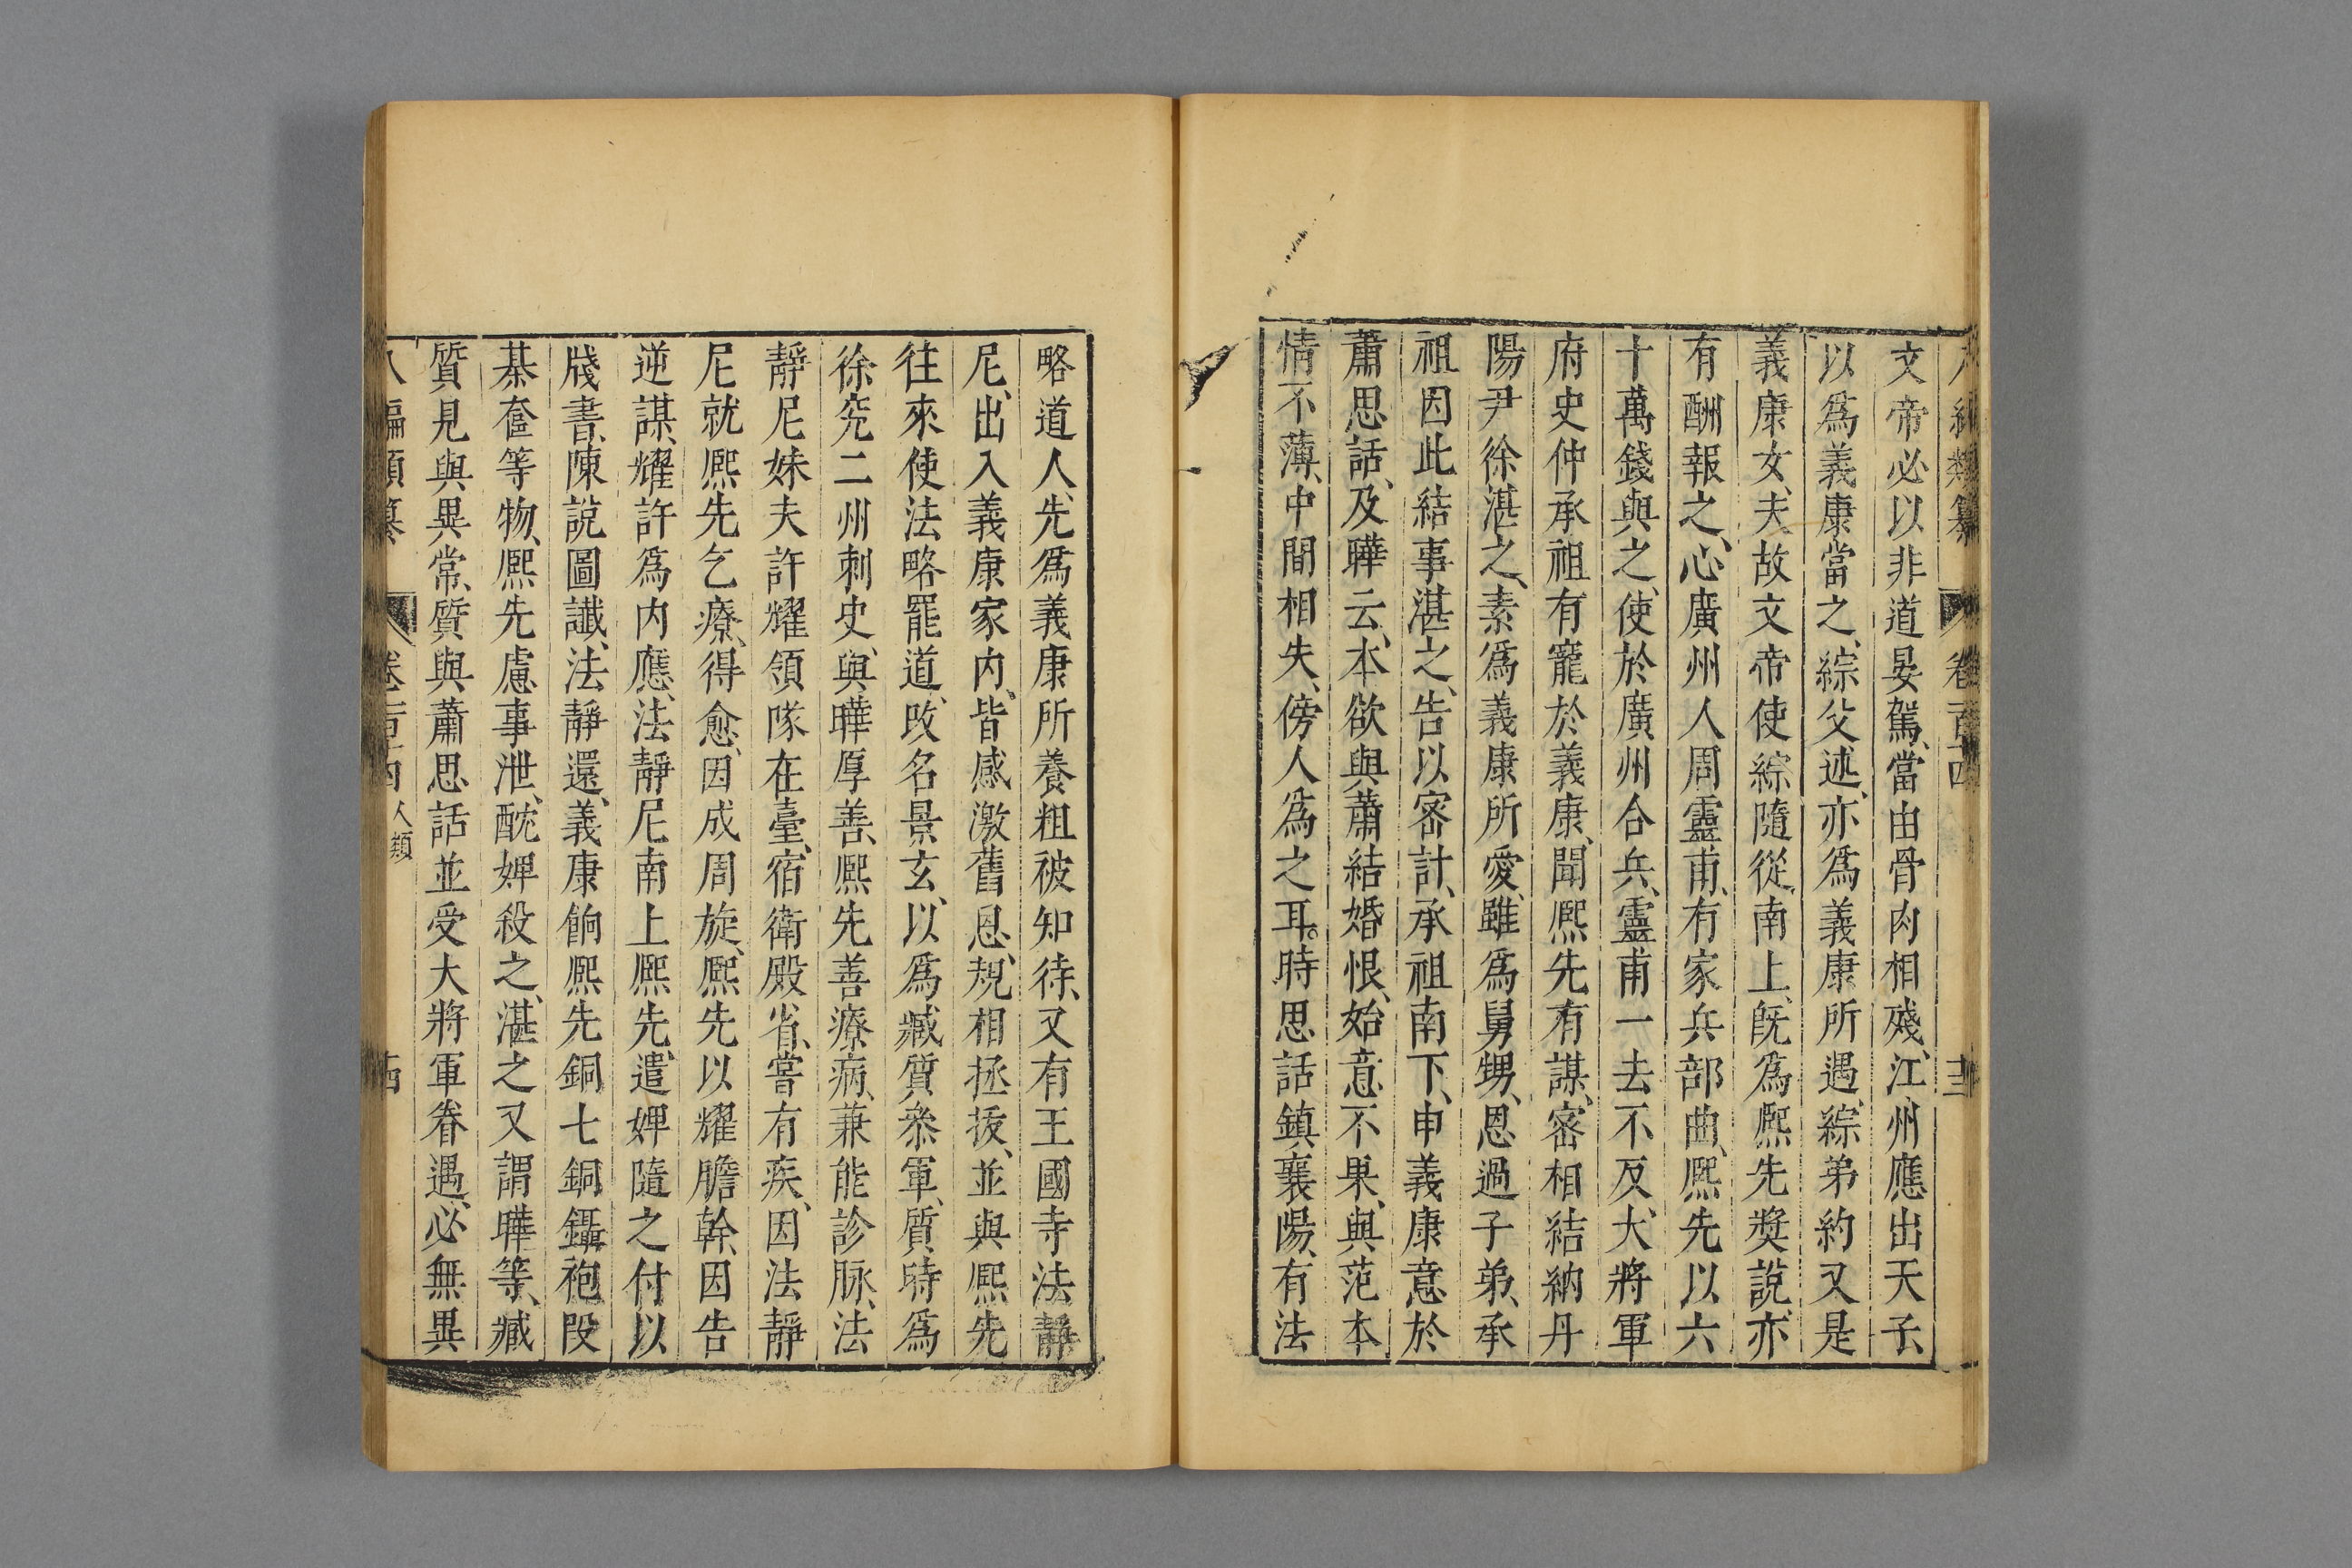 八編類纂 卷一百十四 十三
文帝必以非道晏駕、當由骨肉相殘、江州應出天子
以爲義康當之、綜父述、亦爲義康所遇、綜弟約又是
義康女夫、故文帝使綜隨從、南上、旣爲熈先奬說、亦
有酬報之心、廣州人周靈甫、有家兵部曲、熈先以六
十萬錢與之、使於廣州合兵、靈甫一去不反、大將軍
府史仲承祖有寵於義康、聞熈先有謀、密相結納丹
陽尹徐湛之、素爲義康所愛、雖爲舅甥、恩過子弟、承
祖因此結事湛之、告以密計、承祖南下、申義康意於
蕭思話、及曄云、本欲與蕭結婚、恨始意不果、與范本
情不薄、中間相失、傍人爲之耳。時思話鎮襄陽、有法
略道人、先爲義康所養、粗被知待、又有王國寺法靜
尼、出入義康家內、皆感激舊恩、規相拯拔、並與熈先
往來、使法略罷道、改名景玄、以爲臧質叅軍、質時爲
徐兖二州刺史、與曄厚善、熈先善療病、兼能診脉、法
靜尼妹夫許耀領隊在臺、宿衛殿省、嘗有疾、因法靜
尼就熈先乞療、得愈、因成周旋、熈先以耀膽幹、因告
逆謀、耀許爲內應、法靜尼南上、熈先遣婢隨之付以
牋書、陳說圖讖、法靜還、義康餉熈先銅七銅鑷袍段
棊奩等物、熈先慮事泄、酖婢殺之、湛之又謂曄等、臧
質見與異常、質與蕭思話並受大將軍眷遇、必無異
八編類纂 卷一百十四 人類 十四